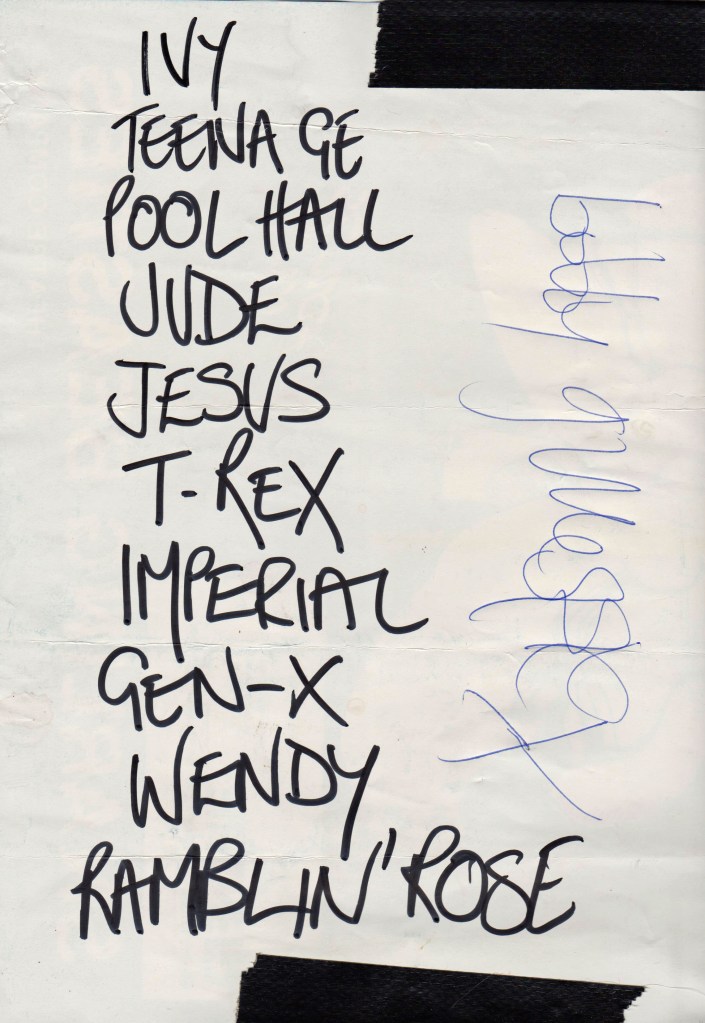 IVY
TEENAGE
POOL HALL
JUDE
JESUS
T-REX
IMPERIAL
GEN-X
WENDY
RAMBLIN' ROSE
bobby gillespie x